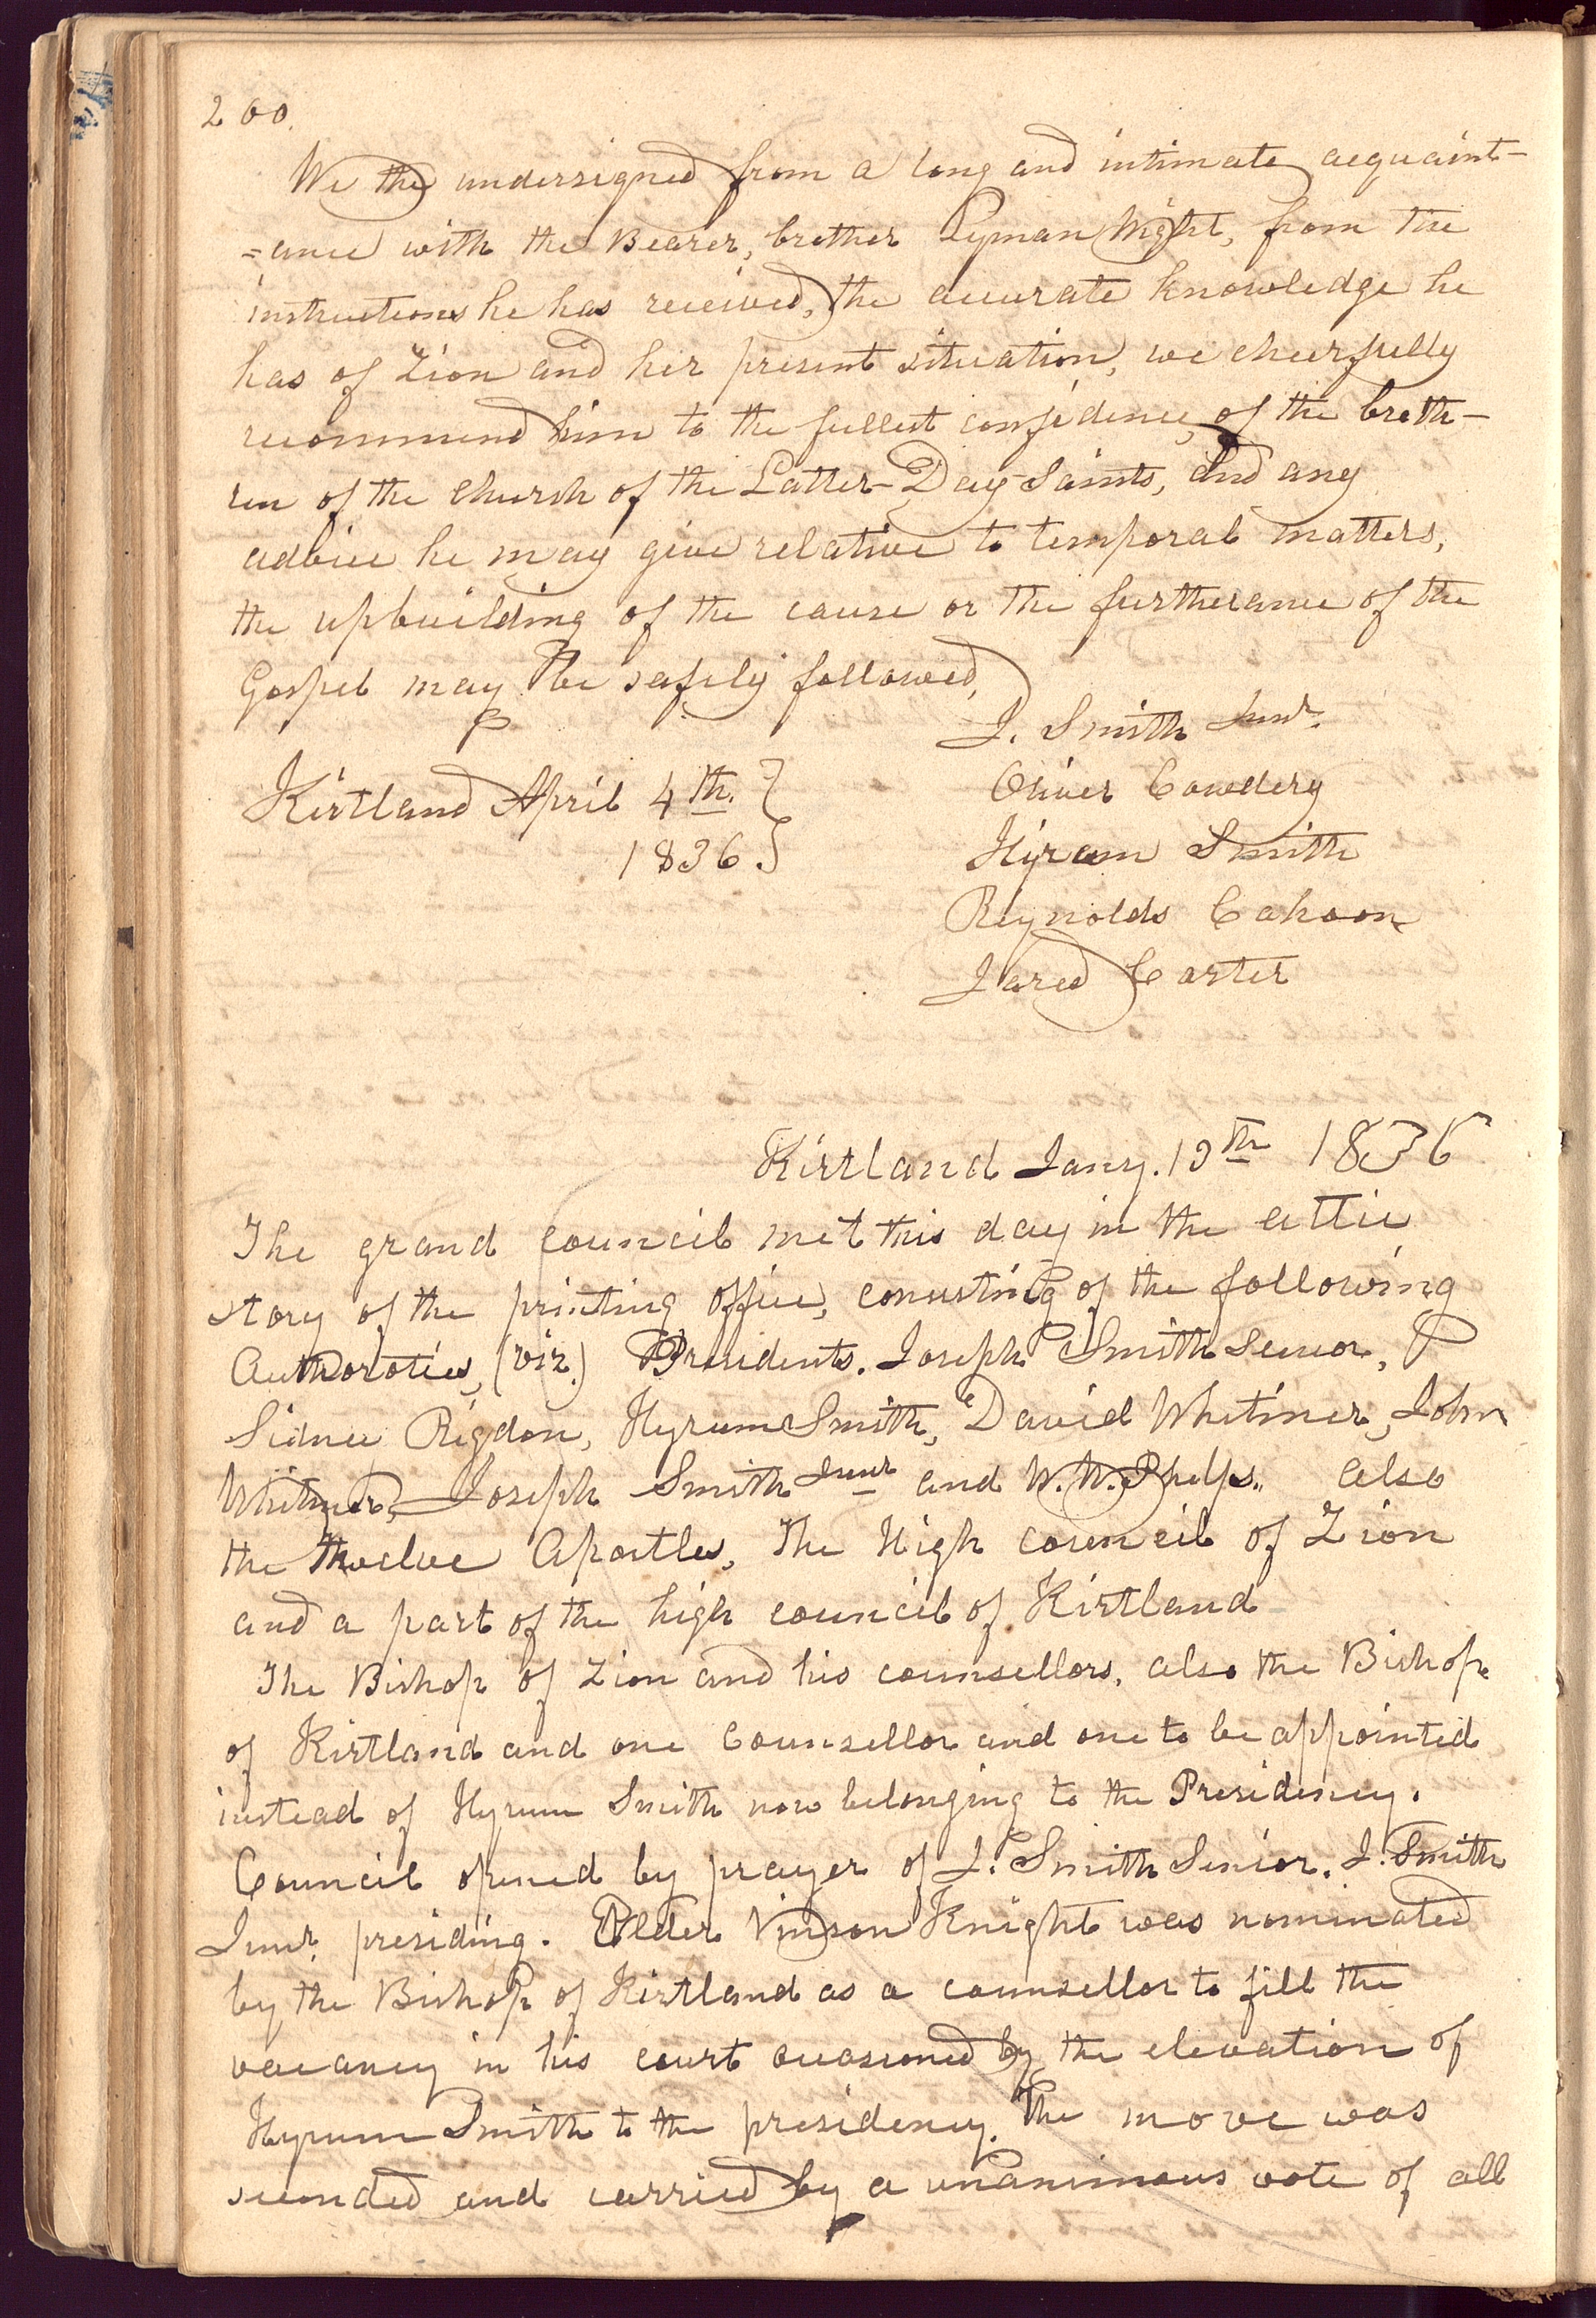 200.
We the undersigned from a long and intimate acquaint-
=ance with the Bearer, brother Lyman Wight, from the
instructions he has received, the accurate knowledge he
has of Zion and her present situation, we cheerfully
recommend him to the fullest confidence, of the breth-
ren of the church of the Latter-Day-Saints, and any
advice he may give relative to temporal matters,
the upbuilding of the cause or the furtherance of the
Gospel may be safely followed,
J. Smith Junr.
Kirtland April 4th. }
1836. }
Oliver Cowdery
Hyram Smith
Reynolds Cahoon
Jared Carter
Kirtland Jany. 13th 1836
The grand council met this day in the attic
story of the printing office, consisting of the following
Authoroties, (viz.) Presidents. Joseph Smith Senior,
Sidnee Rigdon, Hyrum Smith, David Whitmer, John
Whitmer, Joseph Smith Junr and W. W. Phelps. also
the Twelve Apostles, The High council of Zion
and a part of the high council of Kirtland
The Bishop of Zion and his counsellors, also the Bishop
of Kirtland and one Counsellor and one to be appointed
instead of Hyrum Smith now belonging to the Presidency.
Council opened by prayer of J. Smith Senior. J. Smith
Junr. presiding. Elder Vinson Knight was nominated
by the Bishop of Kirtland as a counsellor to fill the
vacancy in his court occasioned by the elevation of
Hyrum Smith to the presidency. The move was
seconded and carried by a unanimous vote of all